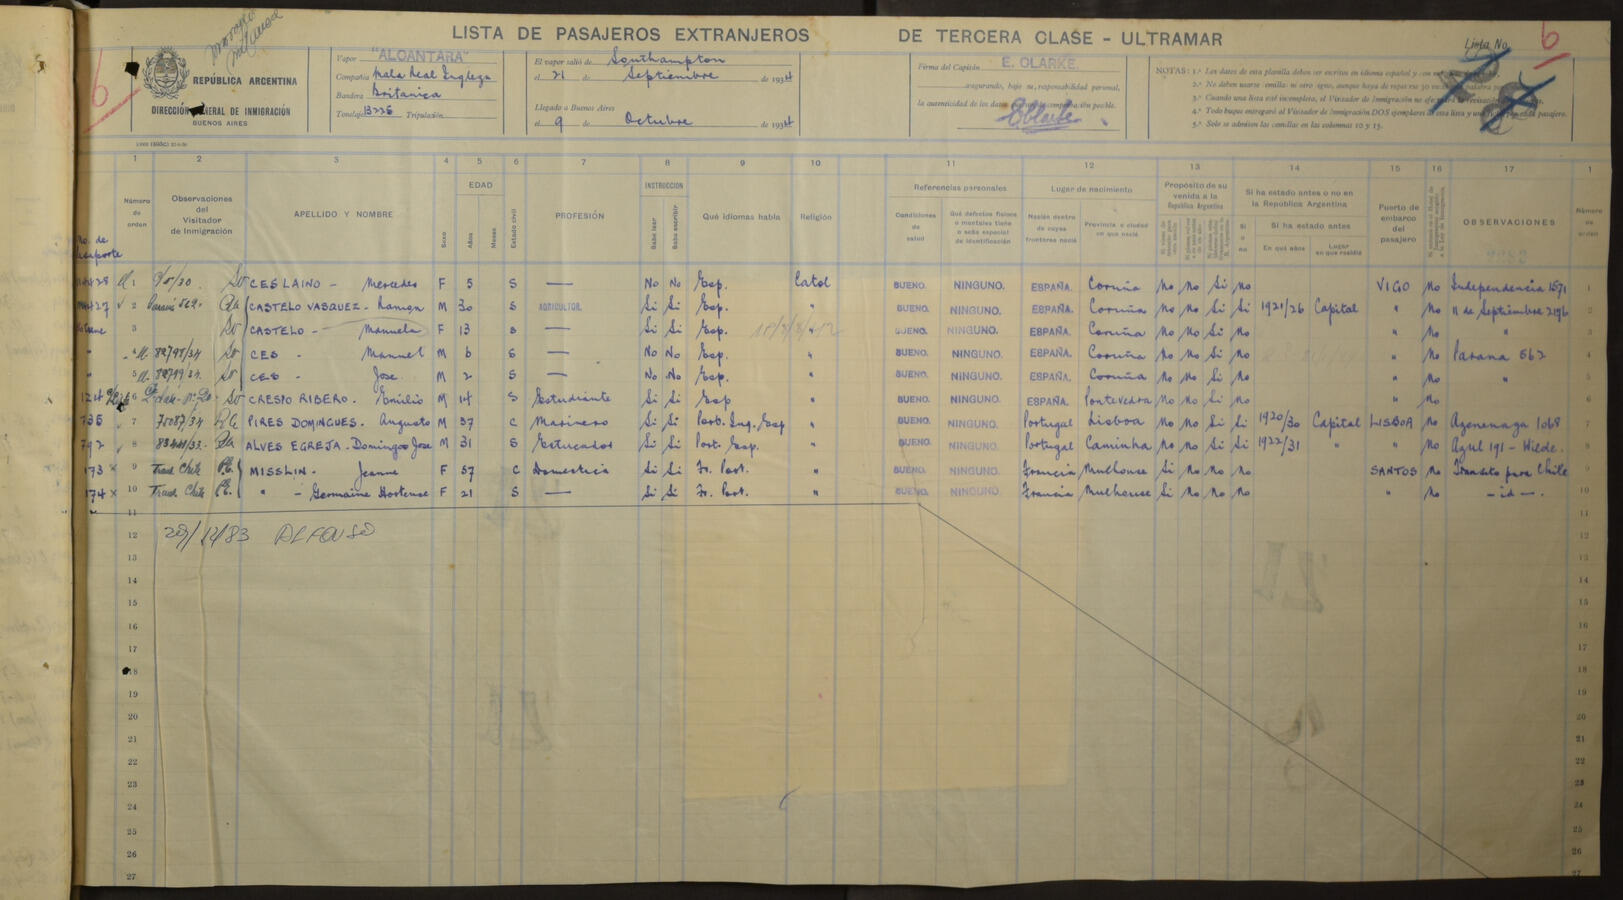 LISTA DE PASAJEROS EXTRANJEROS DE TERCERA CLASE - ULTRAMAR
Lista No. 6
6
REPÚBLICA ARGENTINA
DIRECCIÓN GENERAL DE INMIGRACIÓN
BUENOS AIRES
Vapor "ALCANTARA"
Compañía Mala Real Inglesa
Bandera Britanica
Tonelaje Tripulación
El vapor salió de Southampton
el 21 de Septiembre de 1934
Llegado a Buenos Aires
el 9 de Octubre de 1934
Firma del Capitán E. CLARKE.
asegurando, bajo su responsabilidad personal,
la autenticidad de los datos
NOTAS: 1.ª Los datos de esta planilla deben ser escritos en idioma español y con
2.ª No deben usarse comillas ni otro signo, aunque haya de repetirse
3.ª Cuando una lista esté incompleta, el Visitador de Inmigración
4.ª Todo buque entregará al Visitador de Inmigración DOS ejemplares de esta lista y una
5.ª Solo se admiten las comillas en las columnas 10 y 15.
1 2 3 4 5 6 7 8 9 10 11 12 13 14 15 16 17 1
Número de orden
Observaciones del Visitador de Inmigración
APELLIDO Y NOMBRE
Sexo
EDAD
Años
Meses
Estado civil
PROFESIÓN
INSTRUCCION
Sabe leer
Sabe escribir
Qué idiomas habla
Religión
Referencias personales
Condiciones de salud
Qué defectos físicos o mentales tiene o seña especial de identificación
Lugar de nacimiento
Nación dentro de cuyas fronteras nació
Provincia o ciudad en que nació
Propósito de su venida a la República Argentina
Si ha estado antes o no en la República Argentina
Si o no
Si ha estado antes
En qué años
Lugar en que residió
Puerto de embarco del pasajero
OBSERVACIONES
Número de orden
1 CES LAINO - Mercedes F 5 S — No No Esp. Catol BUENO. NINGUNO. ESPAÑA. Coruña No No Si No VIGO No Independencia 1571 1
2 CASTELO VASQUEZ - Ramon M 30 S AGRICULTOR. Si Si Esp. " BUENO. NINGUNO. ESPAÑA. Coruña No No Si Si 1921/26 Capital " No 11 de Septiembre 2196 2
3 CASTELO - Manuela F 13 S — Si Si Esp. " BUENO. NINGUNO. ESPAÑA. Coruña No No Si No " No " 3
4 82798/34 CES - Manuel M 6 S — No No Esp. " BUENO. NINGUNO. ESPAÑA. Coruña No No Si No " No Parana 562 4
5 82799/34 CES - Jose M 2 S — No No Esp. " BUENO. NINGUNO. ESPAÑA. Coruña No No Si No " No " 5
6 CRESPO RIBERO. Emilio M 14 S Estudiante Si Si Esp " BUENO. NINGUNO. ESPAÑA. Pontevedra No No Si No " No 6
7 PIRES DOMINGUES. Augusto M 37 C Marinero Si Si Port. Ing. Esp " BUENO. NINGUNO. Portugal Lisboa No No Si Si 1920/30 Capital LISBOA No 1068 7
792 8 ALVES EGREJA. Domingos Jose M 31 S Si Si Port. Esp. " BUENO. NINGUNO. Portugal Caminha No No Si Si 1922/31 " " No Azul 191 - Wilde. 8
173 x 9 Trans. Chile MISSLIN. Jeanne F 57 C Domestica Si Si Fr. Port. " BUENO. NINGUNO. Francia Mulhouse Si No No No SANTOS No Transito para Chile 9
174 x 10 Trans. Chile " - Germaine Hortense F 21 S — Si Si Fr. Port. " BUENO. NINGUNO. Francia Mulhouse Si No No No " No - id -. 10
11 11
12 20/12/83 ALFONSO 12
13 13
14 14
15 15
16 16
17 17
18 18
19 19
20 20
21 21
22 22
23 23
24 24
25 25
26 26
27 27